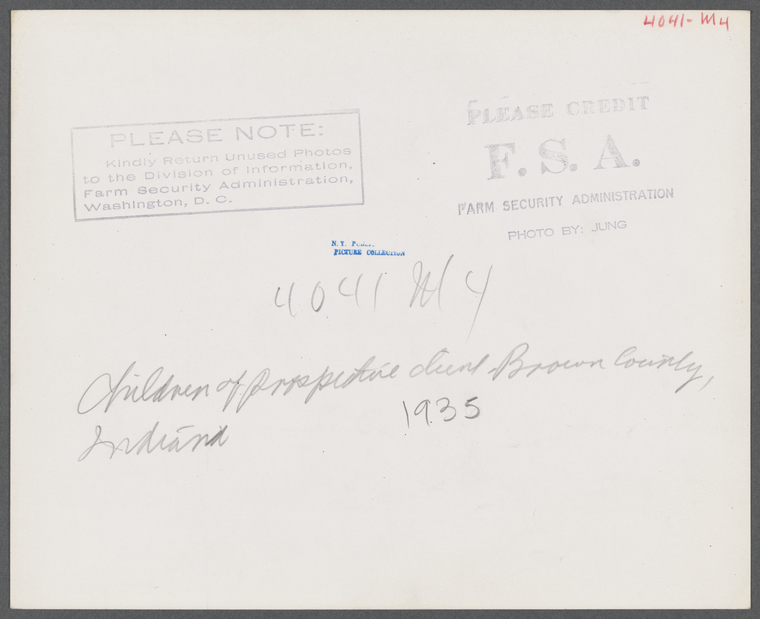 4041-M4
PLEASE NOTE:
Kindly Return Unused Photos
to the Division of Information,
Farm Security Administration,
Washington, D. C.
PLEASE CREDIT
F. S. A.
FARM SECURITY ADMINISTRATION
PHOTO BY: JUNG
N. Y.
PICTURE COLLECTION
4041 M4
Children of prospective client Brown County,
Indiana
1935